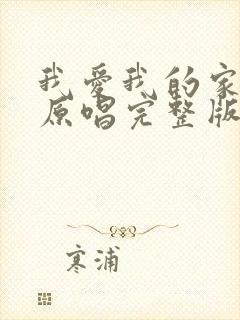 我爱我的家
原唱完整版
寒浦